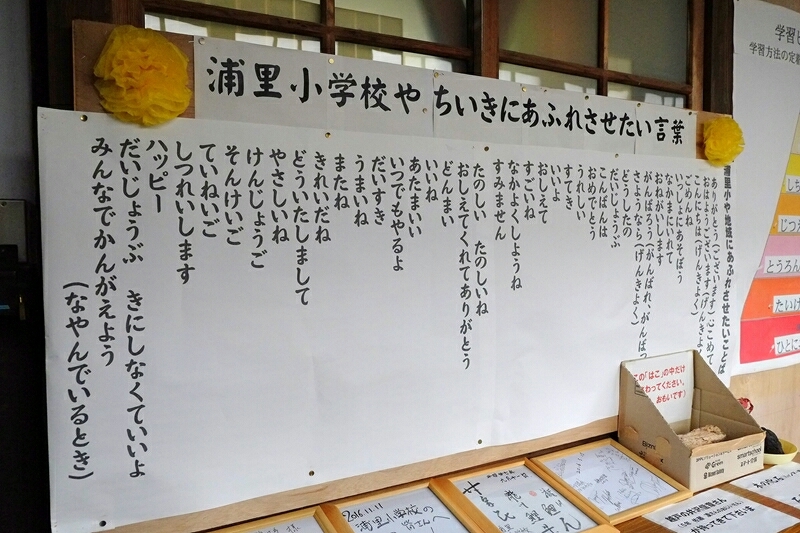 浦里小学校や ちいきにあふれさせたい言葉
浦里小や地域にあふれさせたいことば
ありがとう(ございます)心こめて
おはようございます(げんきよく)
こんにちは(げんきよく)
ごめんね
いっしょにあそぼう
なかまにいれて
おねがいします
がんばろう(がんばれ、がんばっ
さようなら(げんきよく)
どうしたの
だいじょうぶ
こんばんは
おめでとう
うれしい
すてき
いいよ
おしえて
すごいね
なかよくしようね
すみません
たのしい たのしいね
おしえてくれてありがとう
どんまい
いいね
あたまいい
いつでもやるよ
だいすき
うまいね
またね
きれいだね
どういたしまして
やさしいね
けんじょうご
そんけいご
ていねいご
しつれいします
ハッピー
だいじょうぶ きにしなくていいよ
みんなでかんがえよう
(なやんでいるとき)
学習
学習方法の定着
しち
じつ
とうろん
たいけ
ひとに
この「はこ」の中だけ
さわってください。
おもいです)
2016.11.11
浦里小学校の